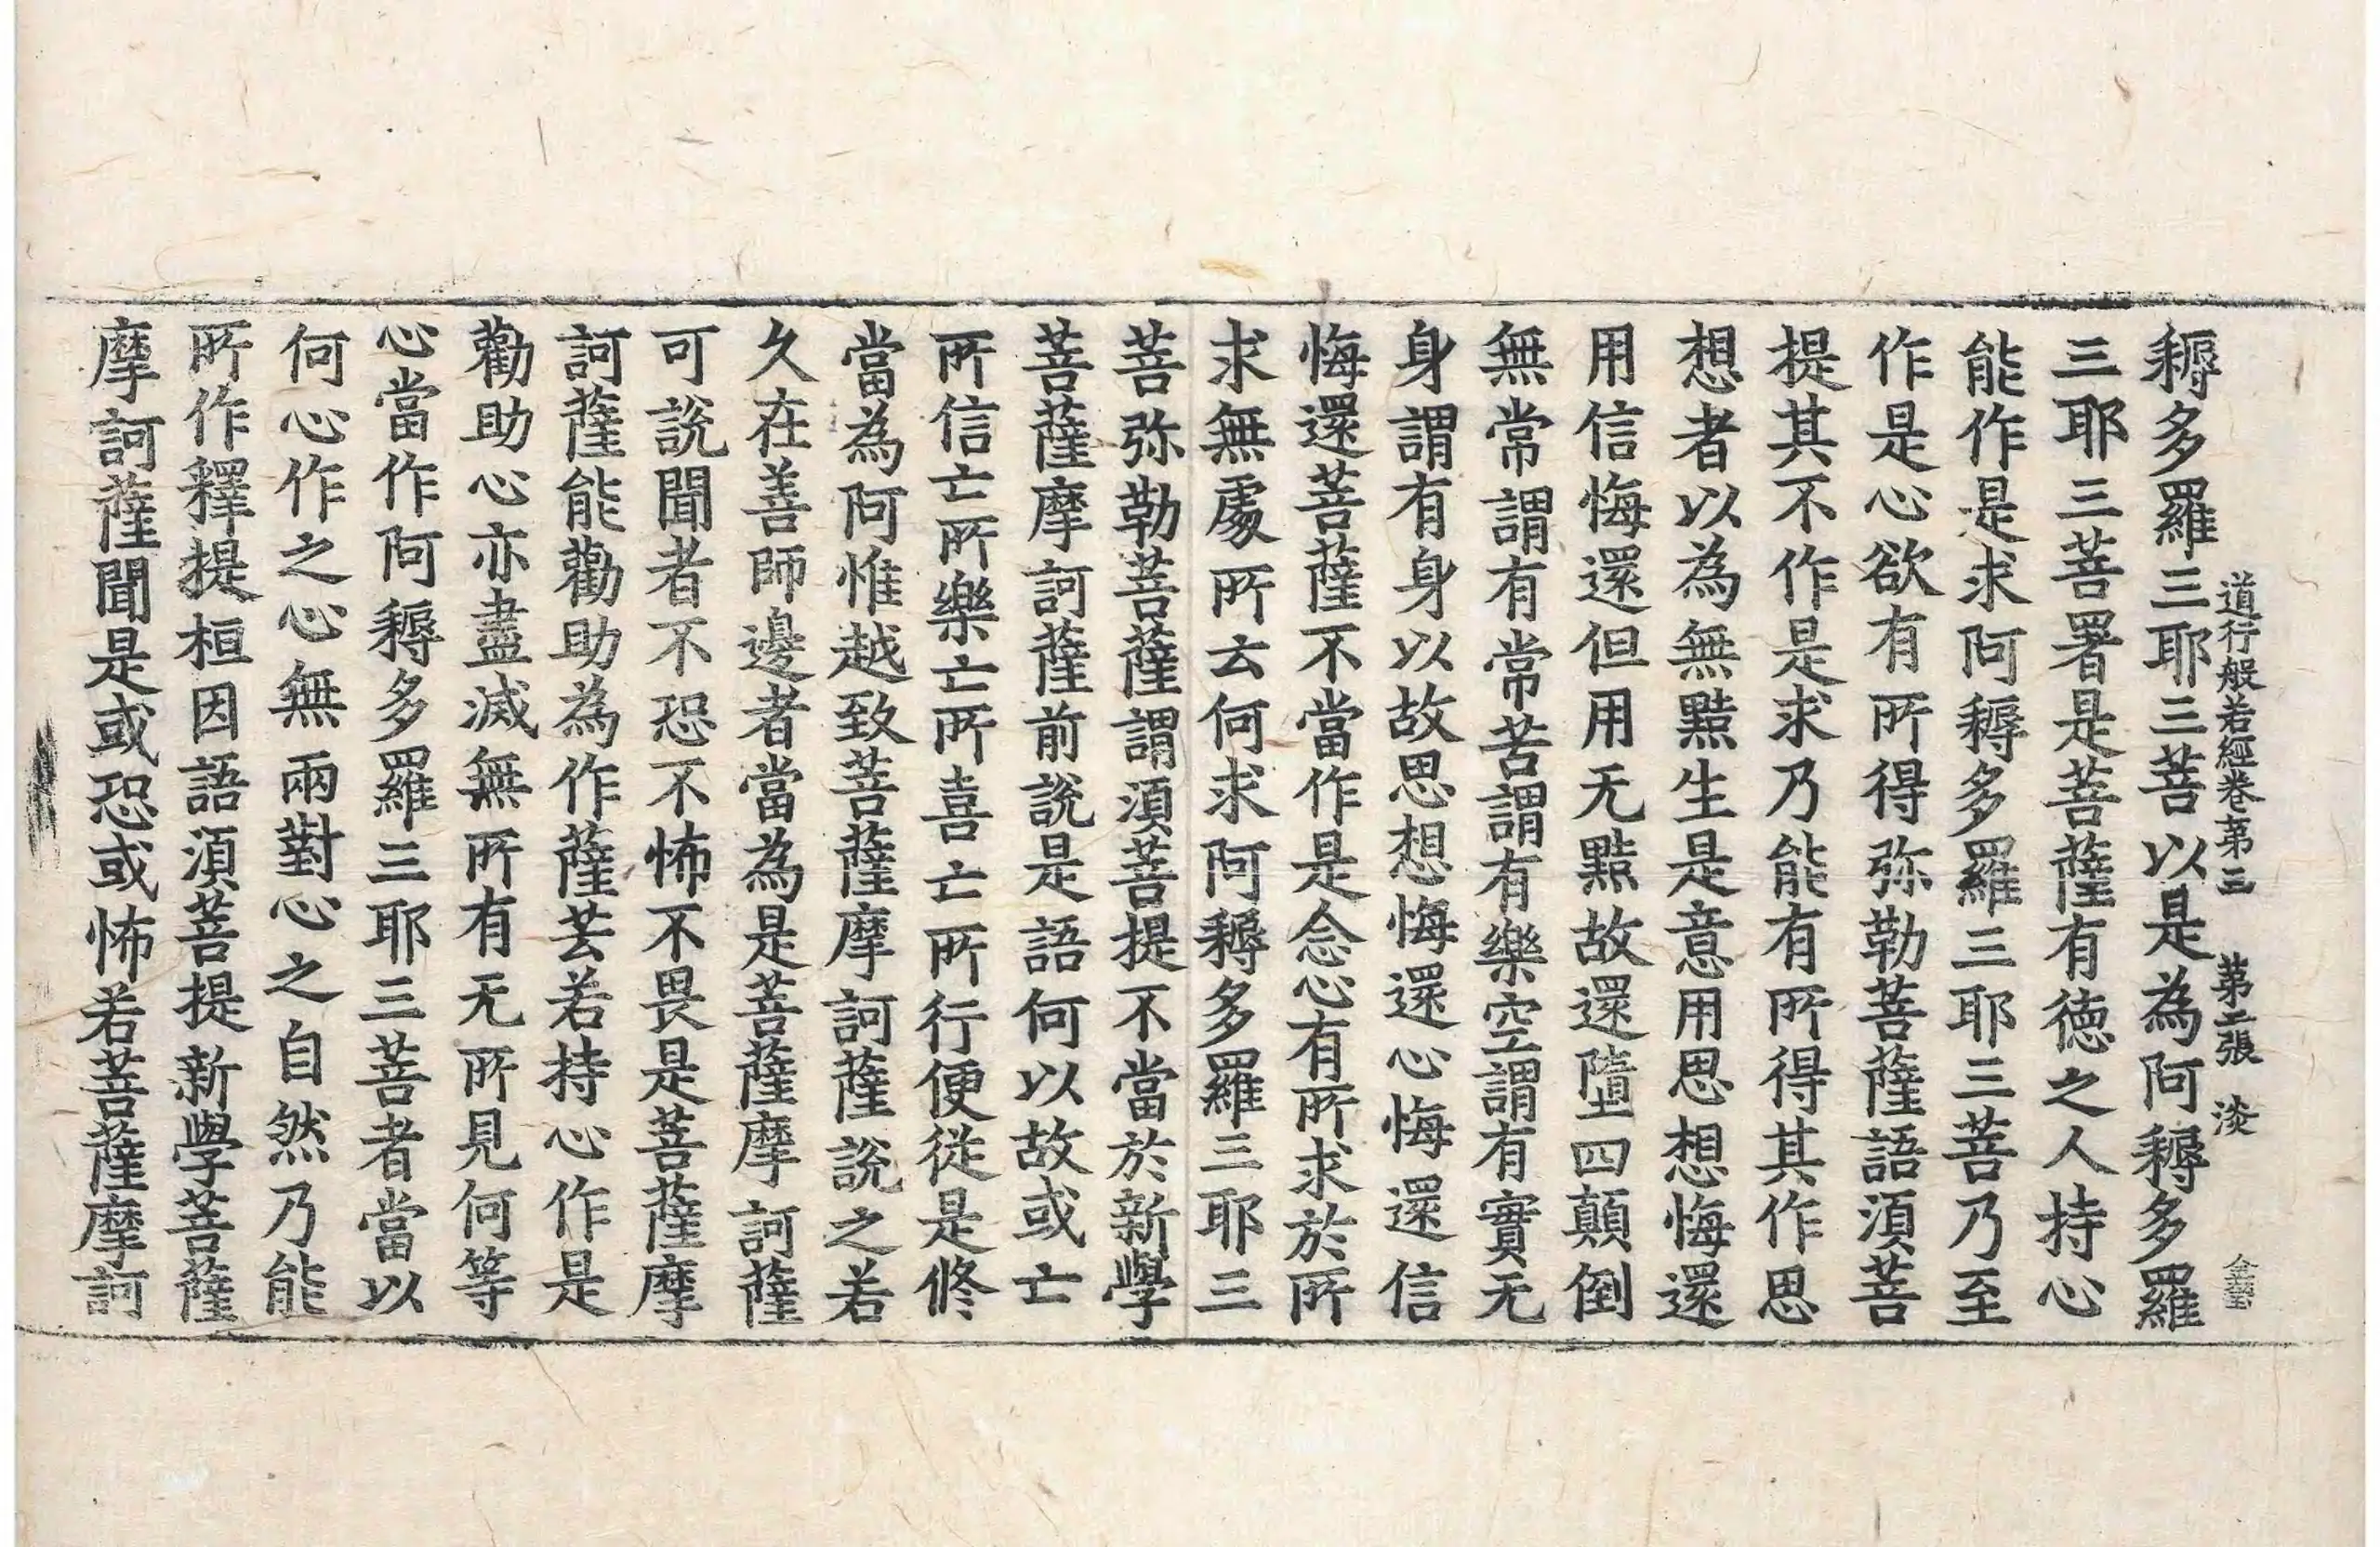 道行般若經卷第三　第二張　淡
耨多羅三耶三菩以是為阿耨多羅
三耶三菩署是菩薩有德之人持心
能作是求阿耨多羅三耶三菩乃至
作是心欲有所得弥勒菩薩語須菩
提其不作是求乃能有所得其作思
想者以為無黠生是意用思想悔還
用信悔還但用无黠故還墮四顛倒
無常謂有常苦謂有樂空謂有實无
身謂有身以故思想悔還心悔還信
悔還菩薩不當作是念心有所求於所
求無處所云何求阿耨多羅三耶三
菩弥勒菩薩謂須菩提不當於新學
菩薩摩訶薩前說是語何以故或亡
所信亡所樂亡所喜亡所行便從是修
當為阿惟越致菩薩摩訶薩說之若
久在善師邊者當為是菩薩摩訶薩
可說聞者不恐不怖不畏是菩薩摩
訶薩能勸助為作薩芸若持心作是
勸助心亦盡滅無所有无所見何等
心當作阿耨多羅三耶三菩者當以
何心作之心無兩對心之自然乃能
所作釋提桓因語須菩提新學菩薩
摩訶薩聞是或恐或怖若菩薩摩訶